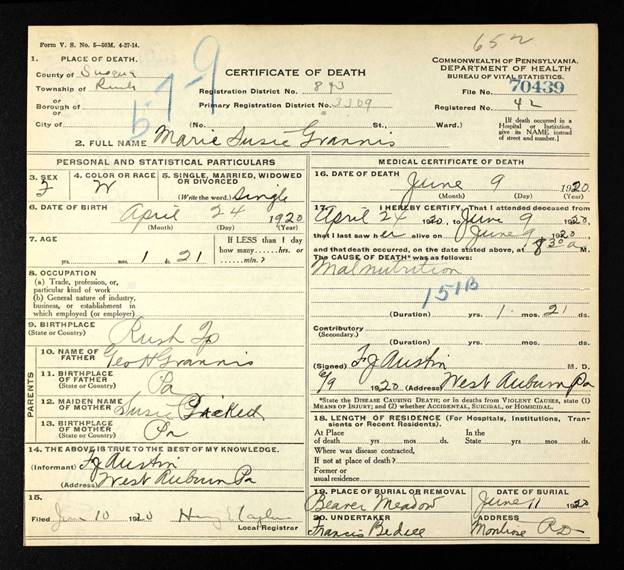 Form V. S. No. 5—50M. 4-27-14.
652
1. PLACE OF DEATH.
County of Susqua
Township of Rush
or
Borough of
or
City of
5-7-9
CERTIFICATE OF DEATH
Registration District No. 843
Primary Registration District No. 3309
(No. St., Ward.)
COMMONWEALTH OF PENNSYLVANIA.
DEPARTMENT OF HEALTH
BUREAU OF VITAL STATISTICS.
File No. 70439
Registered No. 42
[If death occurred in a Hospital or Institution, give its NAME instead of street and number.]
2. FULL NAME Marie Susie Grannis
PERSONAL AND STATISTICAL PARTICULARS
3. SEX F
4. COLOR OR RACE W
5. SINGLE, MARRIED, WIDOWED OR DIVORCED
(Write the word.) Single
6. DATE OF BIRTH April 24 1920
(Month) (Day) (Year)
7. AGE
yrs. 1 mos. 21 ds.
If LESS than 1 day
how many hrs. or
min.?
8. OCCUPATION
(a) Trade, profession, or
particular kind of work
(b) General nature of industry,
business, or establishment in
which employed (or employer)
9. BIRTHPLACE
(State or Country) Rush Tp
PARENTS
10. NAME OF FATHER Geo H Grannis
11. BIRTHPLACE OF FATHER
(State or Country) Pa
12. MAIDEN NAME OF MOTHER Susie
13. BIRTHPLACE OF MOTHER
(State or Country) Pa
14. THE ABOVE IS TRUE TO THE BEST OF MY KNOWLEDGE.
(Informant) F J Austin
(Address) West Auburn Pa
15.
Filed Jun 10 1920
Local Registrar
MEDICAL CERTIFICATE OF DEATH
16. DATE OF DEATH
June 9 1920
(Month) (Day) (Year)
17. I HEREBY CERTIFY, That I attended deceased from
April 24 1920, to June 9 1920,
that I last saw her alive on June 9 1920,
and that death occurred, on the date stated above, at 830 a M.
The CAUSE OF DEATH* was as follows:
Malnutrition
151B
(Duration) yrs. 1 mos. 21 ds.
Contributory
(Secondary.)
(Duration) yrs. mos. ds.
(Signed) F J Austin M. D.
6/9 1920 (Address) West Auburn Pa
*State the DISEASE CAUSING DEATH; or in deaths from VIOLENT CAUSES, state (1) MEANS OF INJURY; and (2) whether ACCIDENTAL, SUICIDAL, or HOMICIDAL.
18. LENGTH OF RESIDENCE (For Hospitals, Institutions, Transients or Recent Residents).
At Place In the
of death yrs. mos. ds. State yrs. mos. ds.
Where was disease contracted,
If not at place of death?
Former or
usual residence
19. PLACE OF BURIAL OR REMOVAL
Beaver Meadow
DATE OF BURIAL
June 11 1920
20. UNDERTAKER
Francis Bedell
ADDRESS
Montrose RD